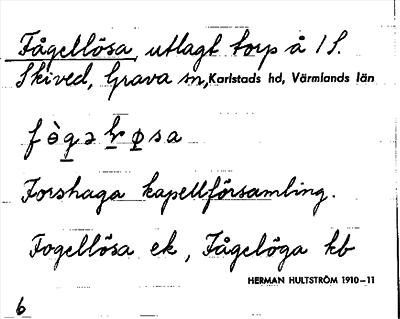 Fågellösa, utlagt torp å 1 S.
Skived, Grava sn, Karlstads hd, Värmlands län
Forshaga kapellförsamling.
Fogellösa ek, Fågelöga kb
HERMAN HULTSTRÖM 1910–11
6